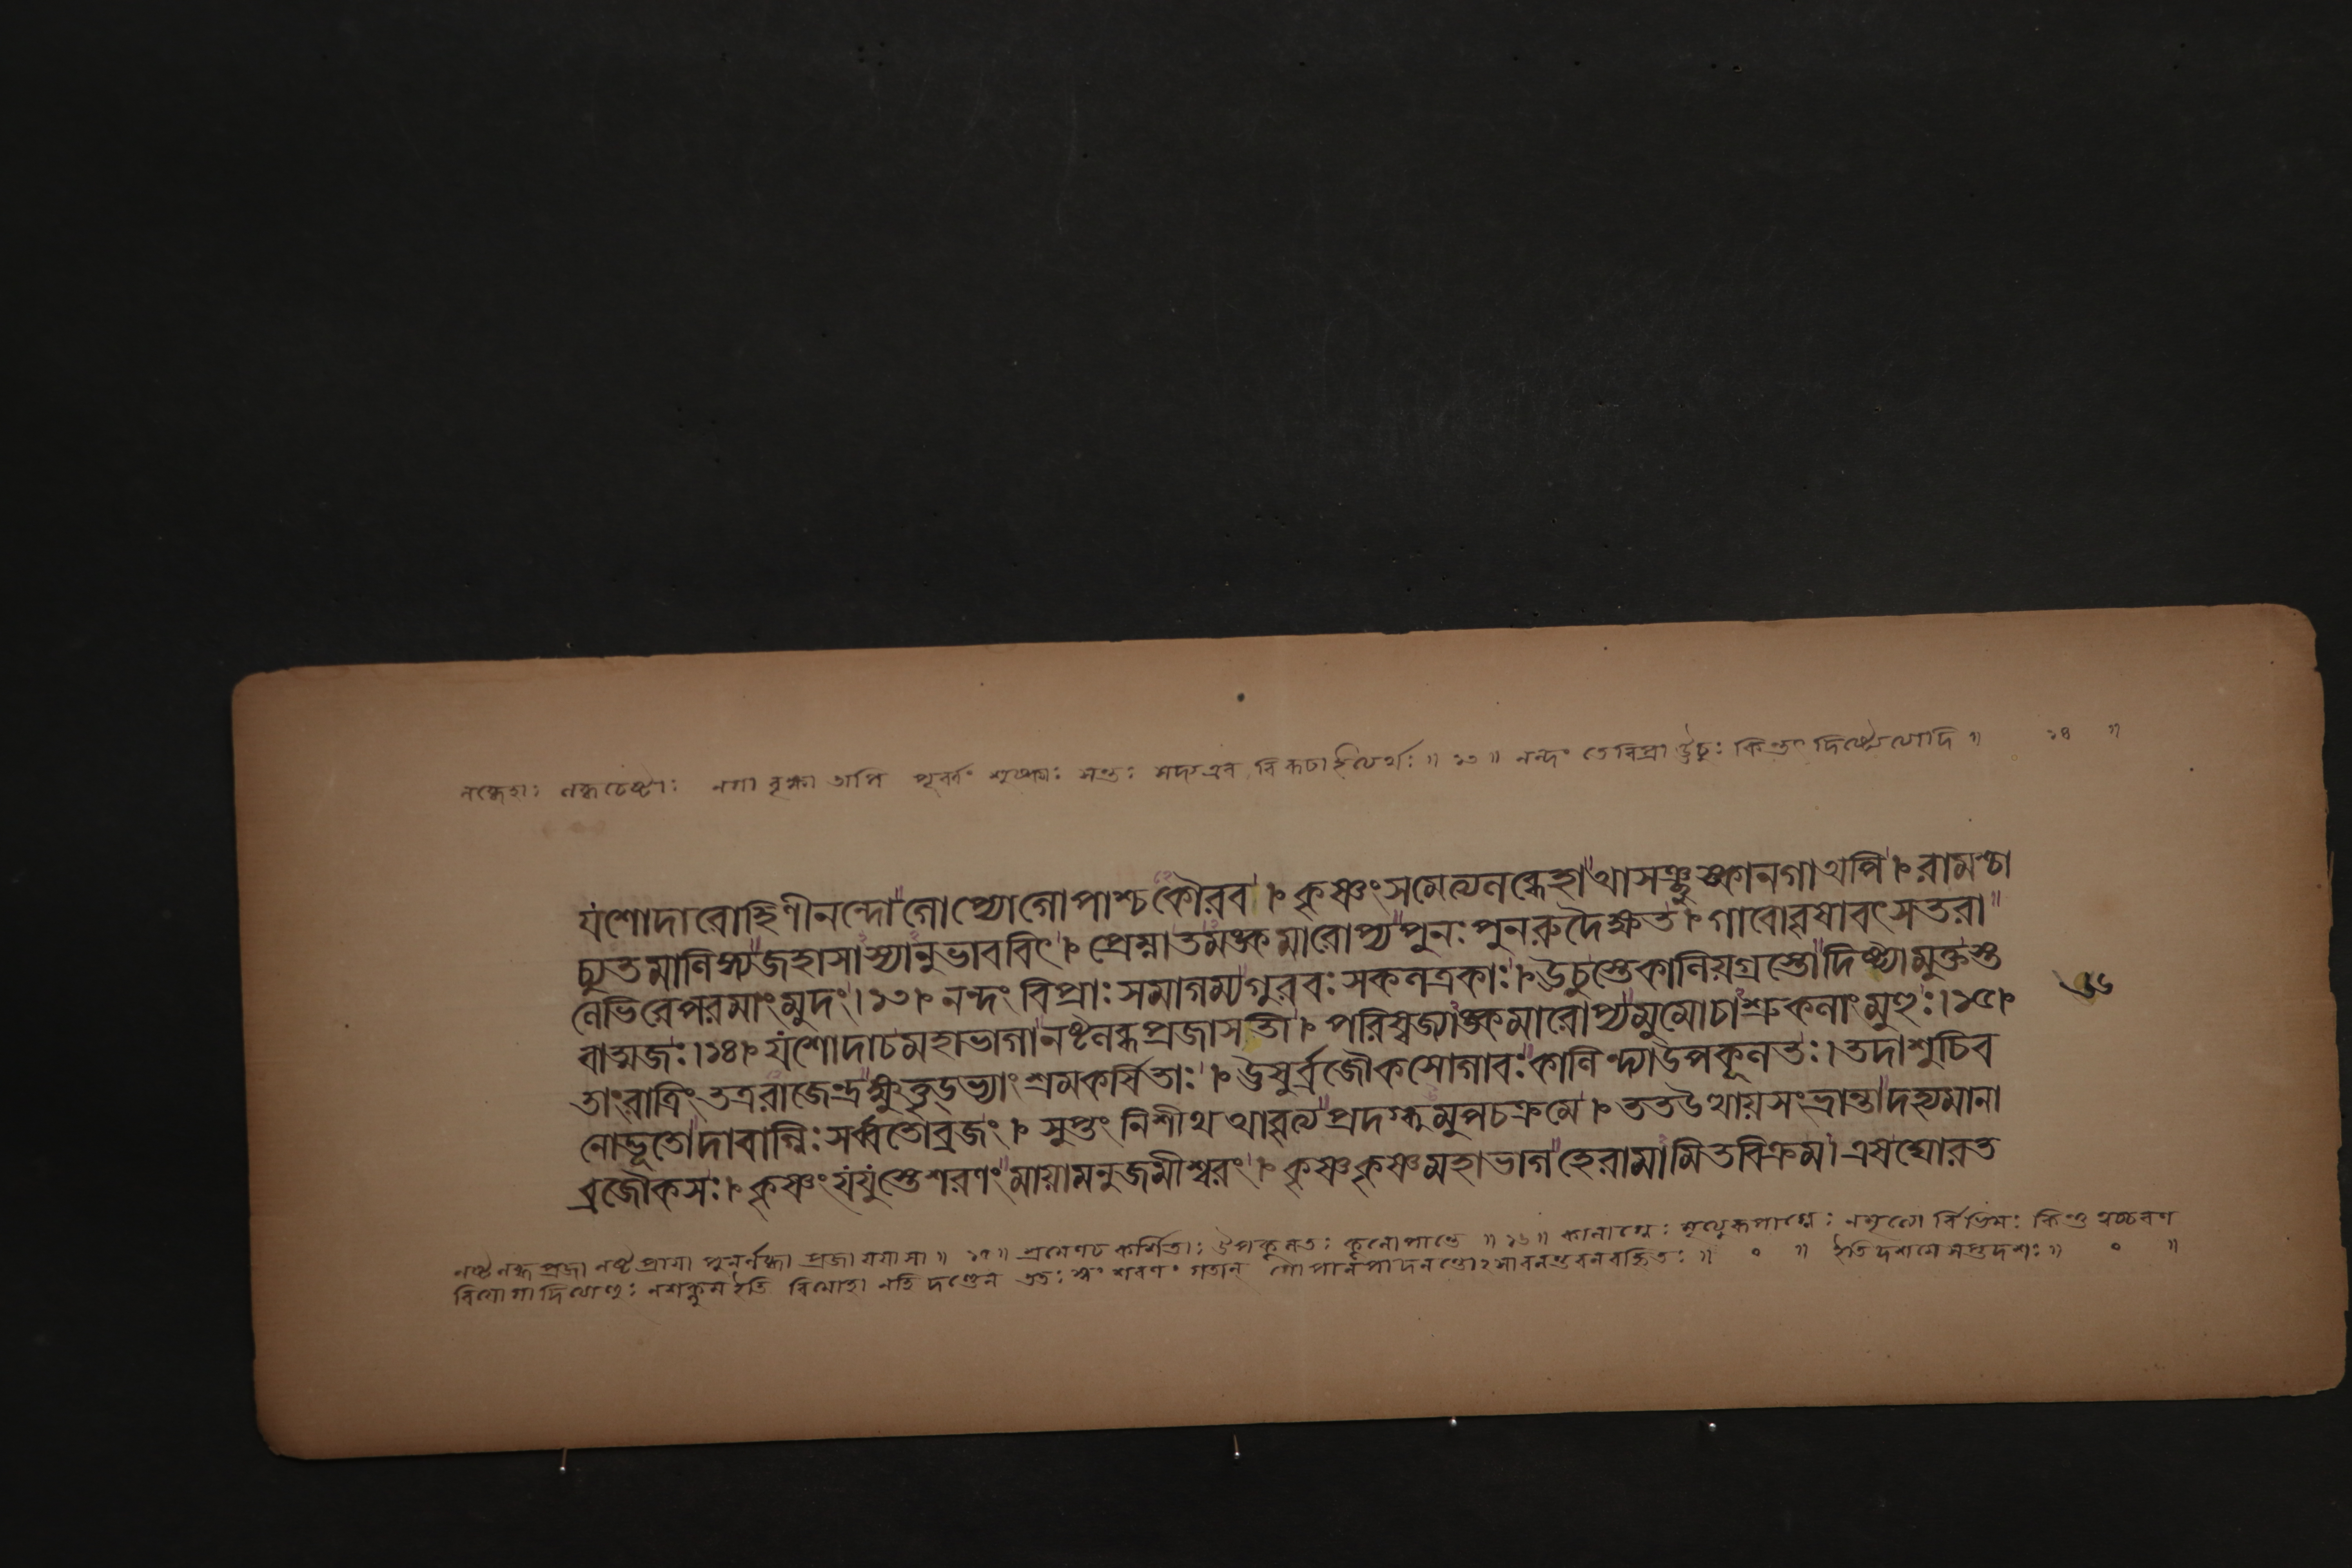 লব্ধেহাঃ লব্ধচেষ্টাঃ নগা বৃক্ষা অপি পূর্ব্বং শুষ্কাঃ সন্তঃ সদ্য এব বিকচা ইত্যর্থঃ ॥ ১৩ ॥ নন্দং তে বিপ্রা ঊচুঃ কিন্তৎ দিষ্ট্যেত্যাদি ॥ ১৪ ॥
যশোদারোহিণীনন্দোগোপ্যোগোপাশ্চকৌরব । কৃষ্ণংসমেত্যলব্ধেহাআসঞ্ছুষ্কানগাঅপি । রামশ্চা
চ্যুতমালিঙ্গ্যজহাসাস্যানুভাববিৎ । প্রেম্নাতমঙ্কমারোপ্যপুনঃপুনরুদৈক্ষত । গাবোবৃষাবৎসতরা
লেভিরেপরমাংমুদং । ১৩ । নন্দং বিপ্রাঃসমাগম্যগুরবঃসকলত্রকাঃ । ঊচুস্তেকালিয়গ্রস্তোদিষ্ট্যামুক্তস্ত
বাত্মজঃ । ১৪ । যশোদাচমহাভাগানষ্টলব্ধপ্রজাসতী । পরিষ্বজ্যাঙ্কমারোপ্যমুমোচাশ্রুকলাংমুহুঃ । ১৫ ।
তাংরাত্রিংতত্ররাজেন্দ্রক্ষুত্তৃড্ভ্যাংশ্রমকর্ষিতাঃ । ঊষুর্ব্রজৌকসোগাবঃকালিন্দ্যাউপকূলতঃ । তদাশুচিব
নোদ্ভূতোদাবাগ্নিঃসর্ব্বতোব্রজং । সুপ্তং নিশীথ আবৃত্যপ্রদগ্ধুমুপচক্রমে । ততউত্থায়সংভ্রান্তাদহ্যমানা
ব্রজৌকসঃ । কৃষ্ণংযযুস্তেশরণংমায়ামনুজমীশ্বরং । কৃষ্ণকৃষ্ণমহাভাগহেরামামিতবিক্রম । এষঘোরত
নষ্টলব্ধপ্রজা নষ্টপ্রায়া পুনর্লব্ধা প্রজা যয়া সা ॥ ১৫ ॥ শ্রমেণচ কর্শিতাঃ উপকূলতঃ কূলোপান্তে ॥ ১৬ ॥ কালাগ্নেঃ মৃত্যুরূপাগ্নেঃ নমৃত্যো র্বিভিমঃ কিন্তু ত্বচ্চরণ
বিয়োগাদিত্যাহুঃ নশক্নুম ইতি শরণং গতান্ গোপাল ইতি দশমে সপ্তদশঃ ॥ ০ ॥